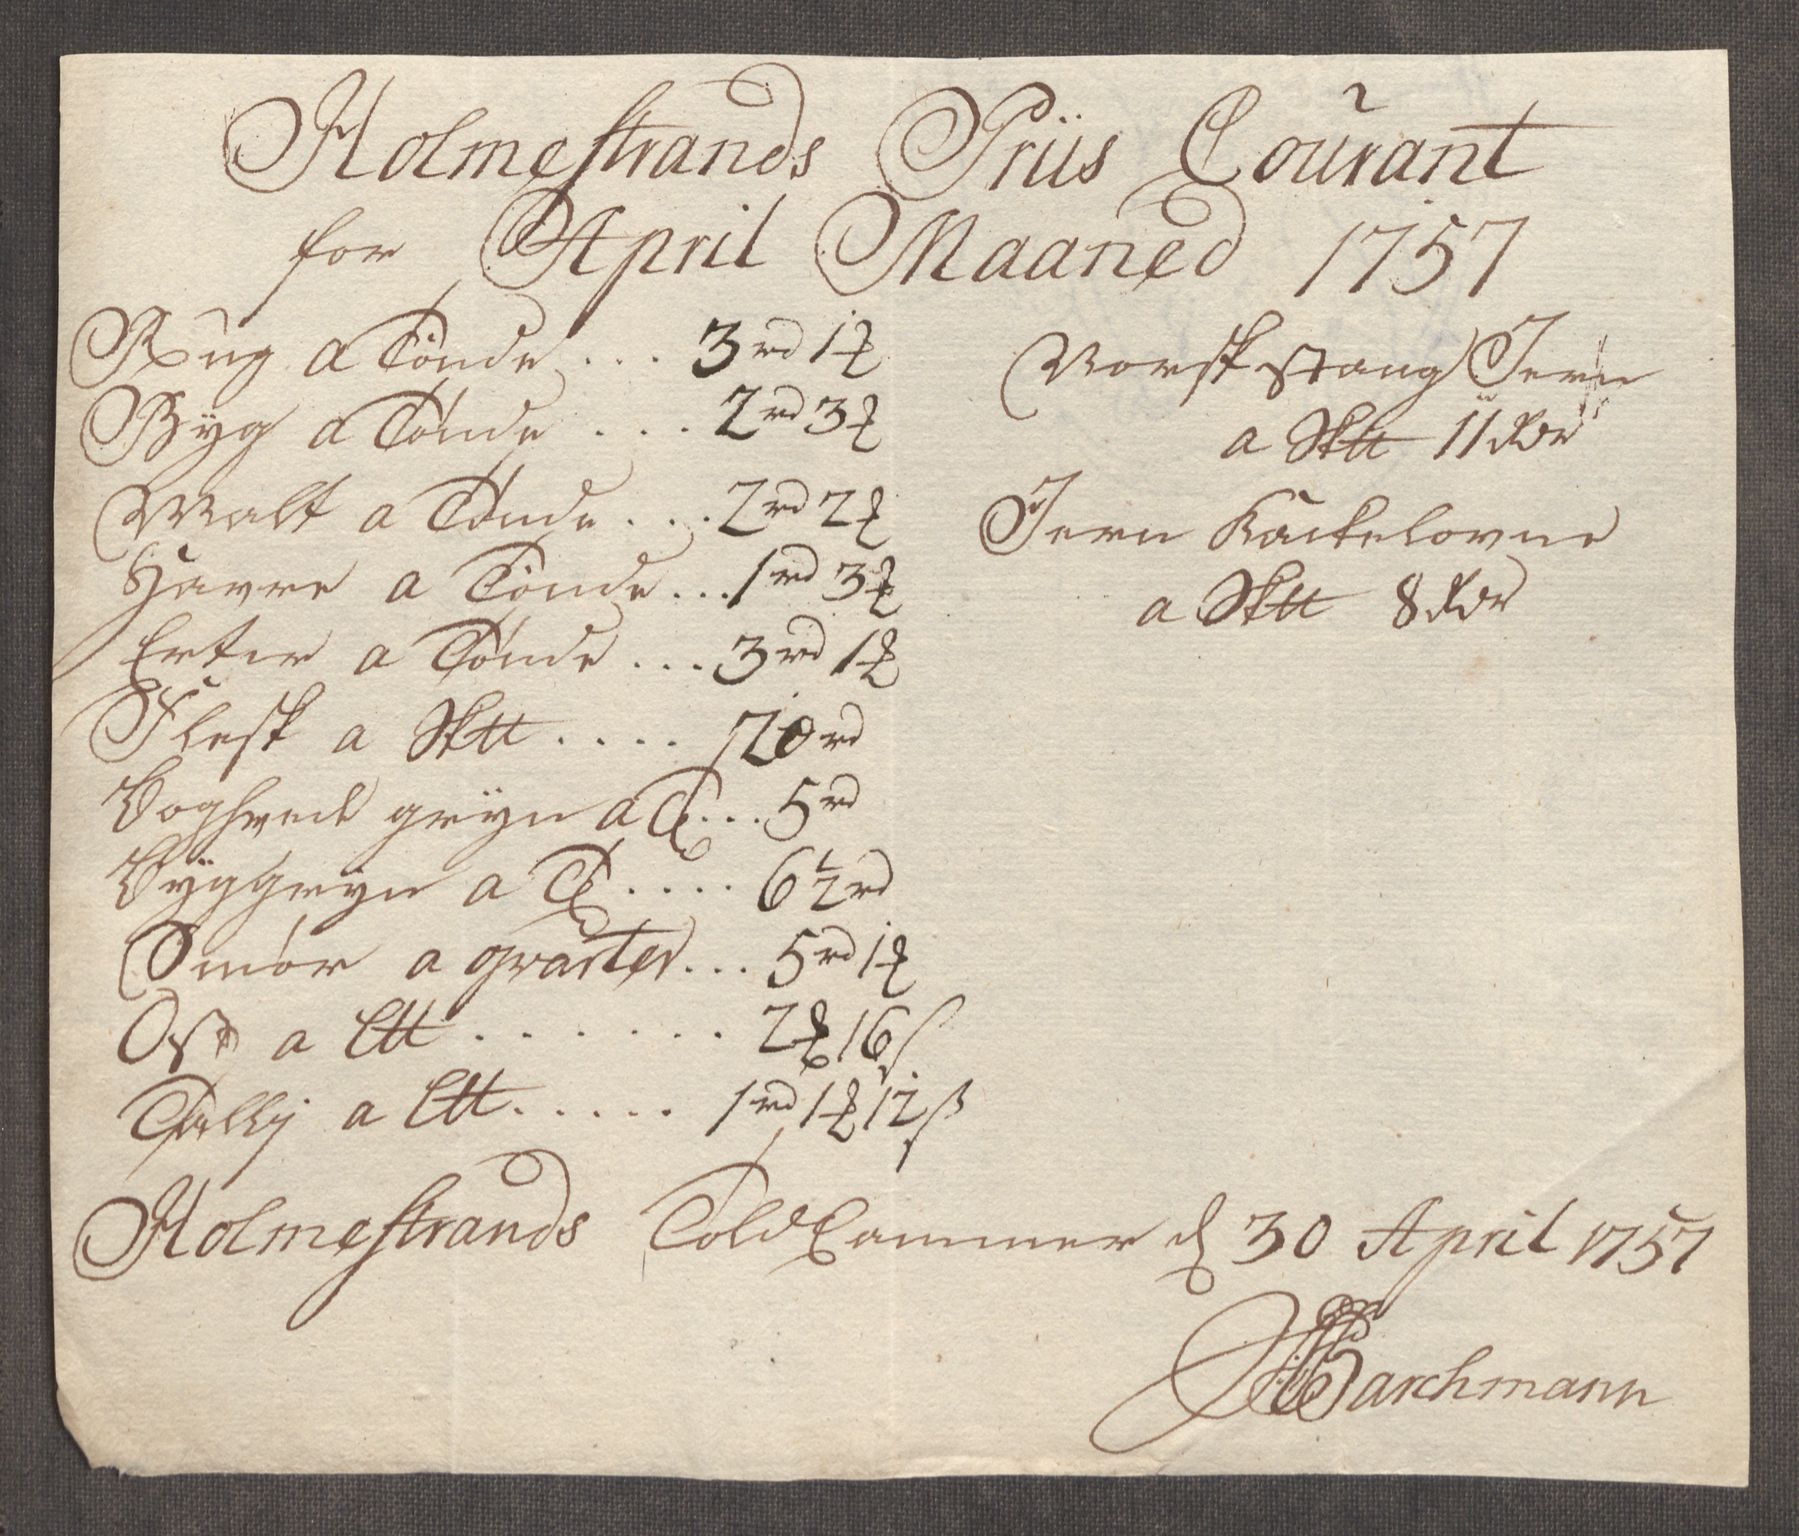 Holmestrands Priis Courant
for April Maaned 1757
Rug a Tönde ... 3 rd 1 ꝭ
Byg a Tønde ... 2 rd 3 ꝭ
Malt a Tønde ... 2 rd 2 ꝭ
Havre a Tönde ... 1 rd 3 ꝭ
Erter a Tønde ... 3 rd 1 ꝭ
Flesk a Sktt .... 20 rd
Boghvede grÿn a T ... 5 rd
Bÿggryn a T .... 6 1/2 rd
Smör a qvarter ... 5 rd 1 ꝭ
Ost a Ltt ....... 2 ꝭ 16 ß
Tallij a Ltt ..... 1 rd 1 ꝭ 12 ß
Norsk Stang Jern
a Sktt 11 rdr
Jern Kackelovne
a Sktt 8 rdr
Holmestrands Told Cammer d 30 April 1757
Barchmann